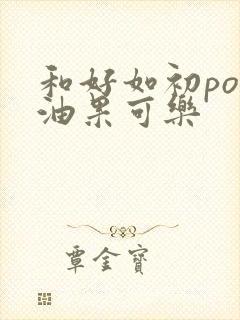 和好如初po
油果可樂
覃金寶